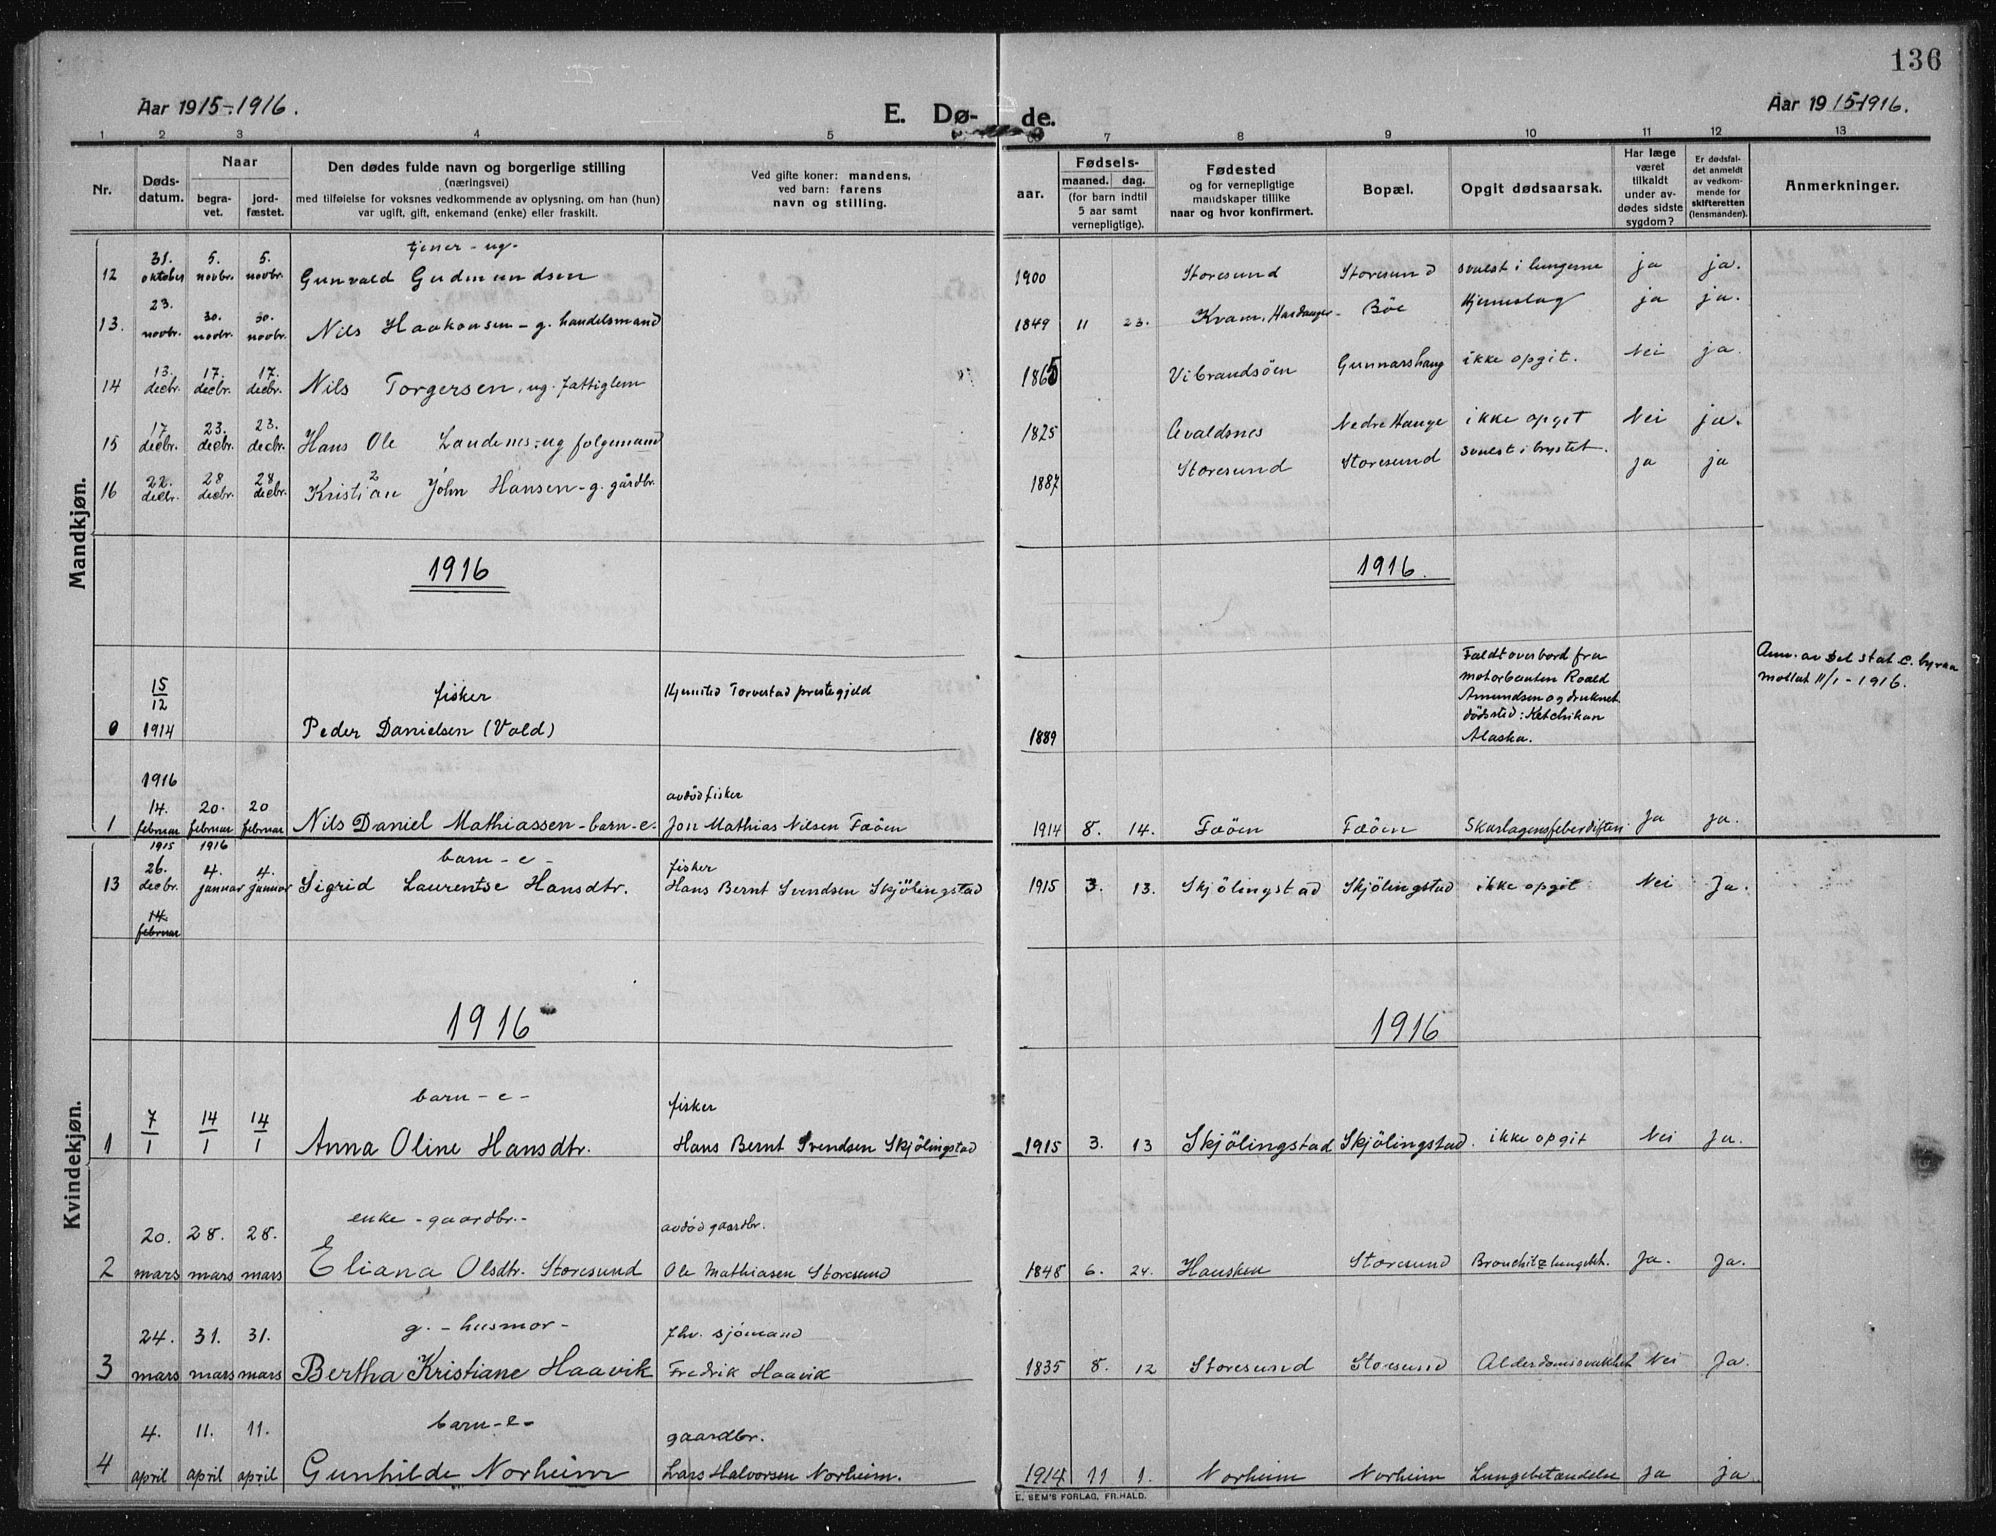 136
Aar 1915-1916.
E. Dø-
de.
Aar 1915-1916.
1 2 3 4 5 6 7 8 9 10 11 12 13
Nr.
Døds-
datum.
Naar
begra-
vet.
jord-
fæstet.
Den dødes fulde navn og borgerlige stilling
(næringsvei)
med tilføielse for voksnes vedkommende av oplysning, om han (hun)
var ugift, gift, enkemand (enke) eller fraskilt.
Ved gifte koner: mandens,
ved barn: farens
navn og stilling.
aar.
Fødsels-
maaned. dag.
(for barn indtil
5 aar samt
vernepligtige).
Fødested
og for vernepligtige
mandskaper tillike
naar og hvor konfirmert.
Bopæl.
Opgit dødsaarsak.
Har læge
været
tilkaldt
under av-
dødes sidste
sygdom?
Er dødsfal-
det anmeldt
av vedkom-
mende for
skifteretten
(lensmanden).
Anmerkninger.
Mandkjøn.
31. 5. 5. tjener - ug-
12 oktober novbr. novbr. Gunvald Gudmundsen 1900 Storesund Storesund svulst i lungerne ja ja.
23. 30. 30.
13. novbr. novbr. novbr. Nils Haakonsen - g. handelsmand 1849 11 23. Kvam, Hardanger - Böe Hjerneslag ja ja.
13. 17. 17.
14 decbr. decbr. decbr. Nils Torgersen, ug. fattiglem 1865 Vibrandsöen Gunnarshaug ikke opgit. Nei ja.
17 23. 23.
15 decbr. decbr. decbr. Hans Ole ug folgemand 1825 Avaldsnes Nedre Hauge ikke opgit Nei ja.
22. 28 28
16 decbr. decbr. decbr. Kristian John Hansen - g. gårdbr. 1887 Storesund Storesund svulst i brystet. ja ja
1916
1916.
15
12 fisker Hjemsted Torvestad prestegjeld
0 1914 Peder Danielsen (Vold) 1889
Faldt overbord fra
motorbaaten Roald
Amundsen og druknet
dödssted: Ketchikan
Alaska.
Anm. av Det stat. c. byraa
mottat 11/1 - 1916.
1916
14. 20. 20 avdöd fisker
1 februar februar februar Nils Daniel Mathiassen - barn - e. Jon Mathias Nilsen Fæöen 1914 8. 14. Fæöen Fæöen Skarlagensfeber difteri Ja ja.
Kvindekjøn.
1915 1916
26. 4. 4. barn - e - fisker
13 decbr. januar januar Sigrid Laurentse Hansdtr. Hans Bernt Svendsen Skjölingstad 1915 3. 13. Skjölingstad Skjölingstad ikke opgit Nei Ja.
14.
februar
1916
1916
7 14 14 barn - e - fisker
1 1 1 1 Anna Oline Hansdtr. Hans Bernt Svendsen Skjölingstad 1915 3. 13 Skjölingstad Skjölingstad. ikke opgit Nei Ja.
20. 28. 28. enke - gaardbr. - avdöd gaardbr.
2 mars mars mars Eliana Olsdtr. Storesund Ole Mathiasen Storesund 1848 6. 24. Hausken Storesund Bronchit Ja. Ja.
24. 31. 31. g. - husmor - fhv. sjömand
3 mars mars mars Bertha Kristiane Haavik Fredrik Haavik 1835 8. 12 Storesund Storesund Alderdomssvakhet Nei Ja.
4. 11. 11. barn - e - gaardbr.
4 april april april Gunhilde Norheim Lars Halvorsen Norheim. 1914 11 1. Norheim Norheim Lungebetændelse ja ja
E. SEM'S FORLAG, FR.HALD.